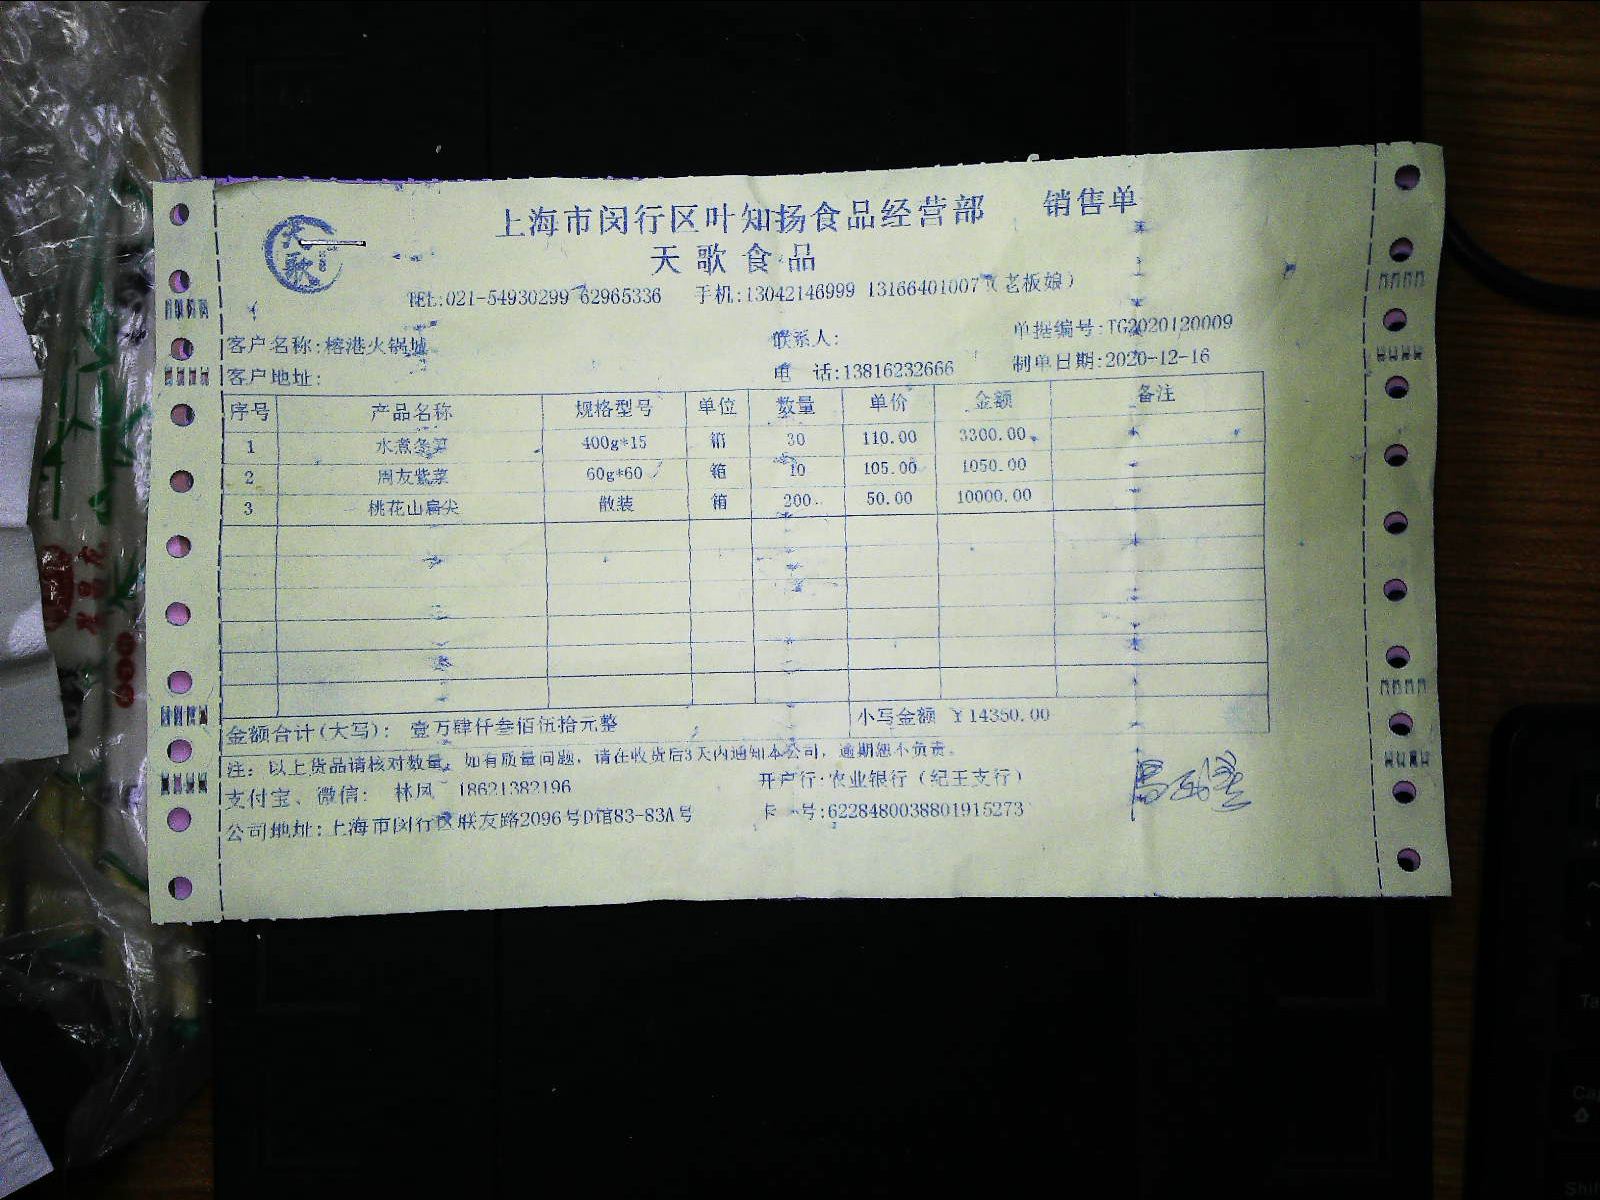 上海市闵行区叶知扬食品经营部 销售单
天歌
天歌食品
TEL:021-54930299 62965336 手机:13042146999 13166401007（老板娘）
客户名称:榕港火锅城 联系人: 单据编号:TG2020120009
客户地址: 电 话:13816232666 制单日期:2020-12-16
序号 产品名称 规格型号 单位 数量 单价 金额 备注
1 水煮冬笋 400g*15 箱 30 110.00 3300.00
2 周友紫菜 60g*60 箱 10 105.00 1050.00
3 桃花山扁尖 散装 箱 200 50.00 10000.00
金额合计(大写): 壹万肆仟叁佰伍拾元整 小写金额 ￥14350.00
注: 以上货品请核对数量, 如有质量问题, 请在收货后3天内通知本公司, 逾期恕不负责。
支付宝、微信: 林凤 18621382196 开户行:农业银行（纪王支行）
公司地址:上海市闵行区联友路2096号D馆83-83A号 卡 号:6228480038801915273